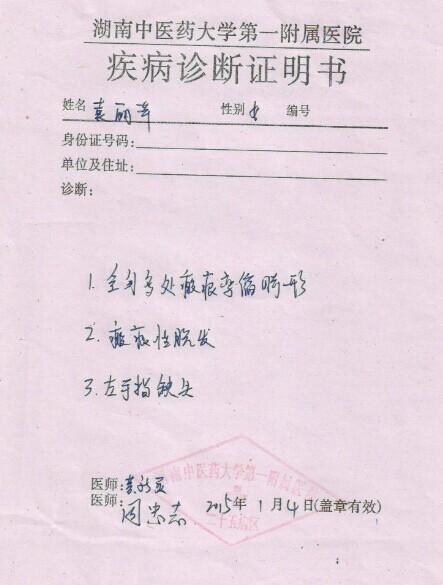 湖南中医药大学第一附属医院
疾病诊断证明书
姓名 袁丽萍 性别 女 编号
身份证号码:
单位及住址:
诊断:
1. 全身多处瘢痕挛缩畸形
2. 瘢痕性脱发
3. 左手指缺失
湖南中医药大学第一附属医院
二十五病区
医师:
医师: 周忠志 2015年1月4日(盖章有效)